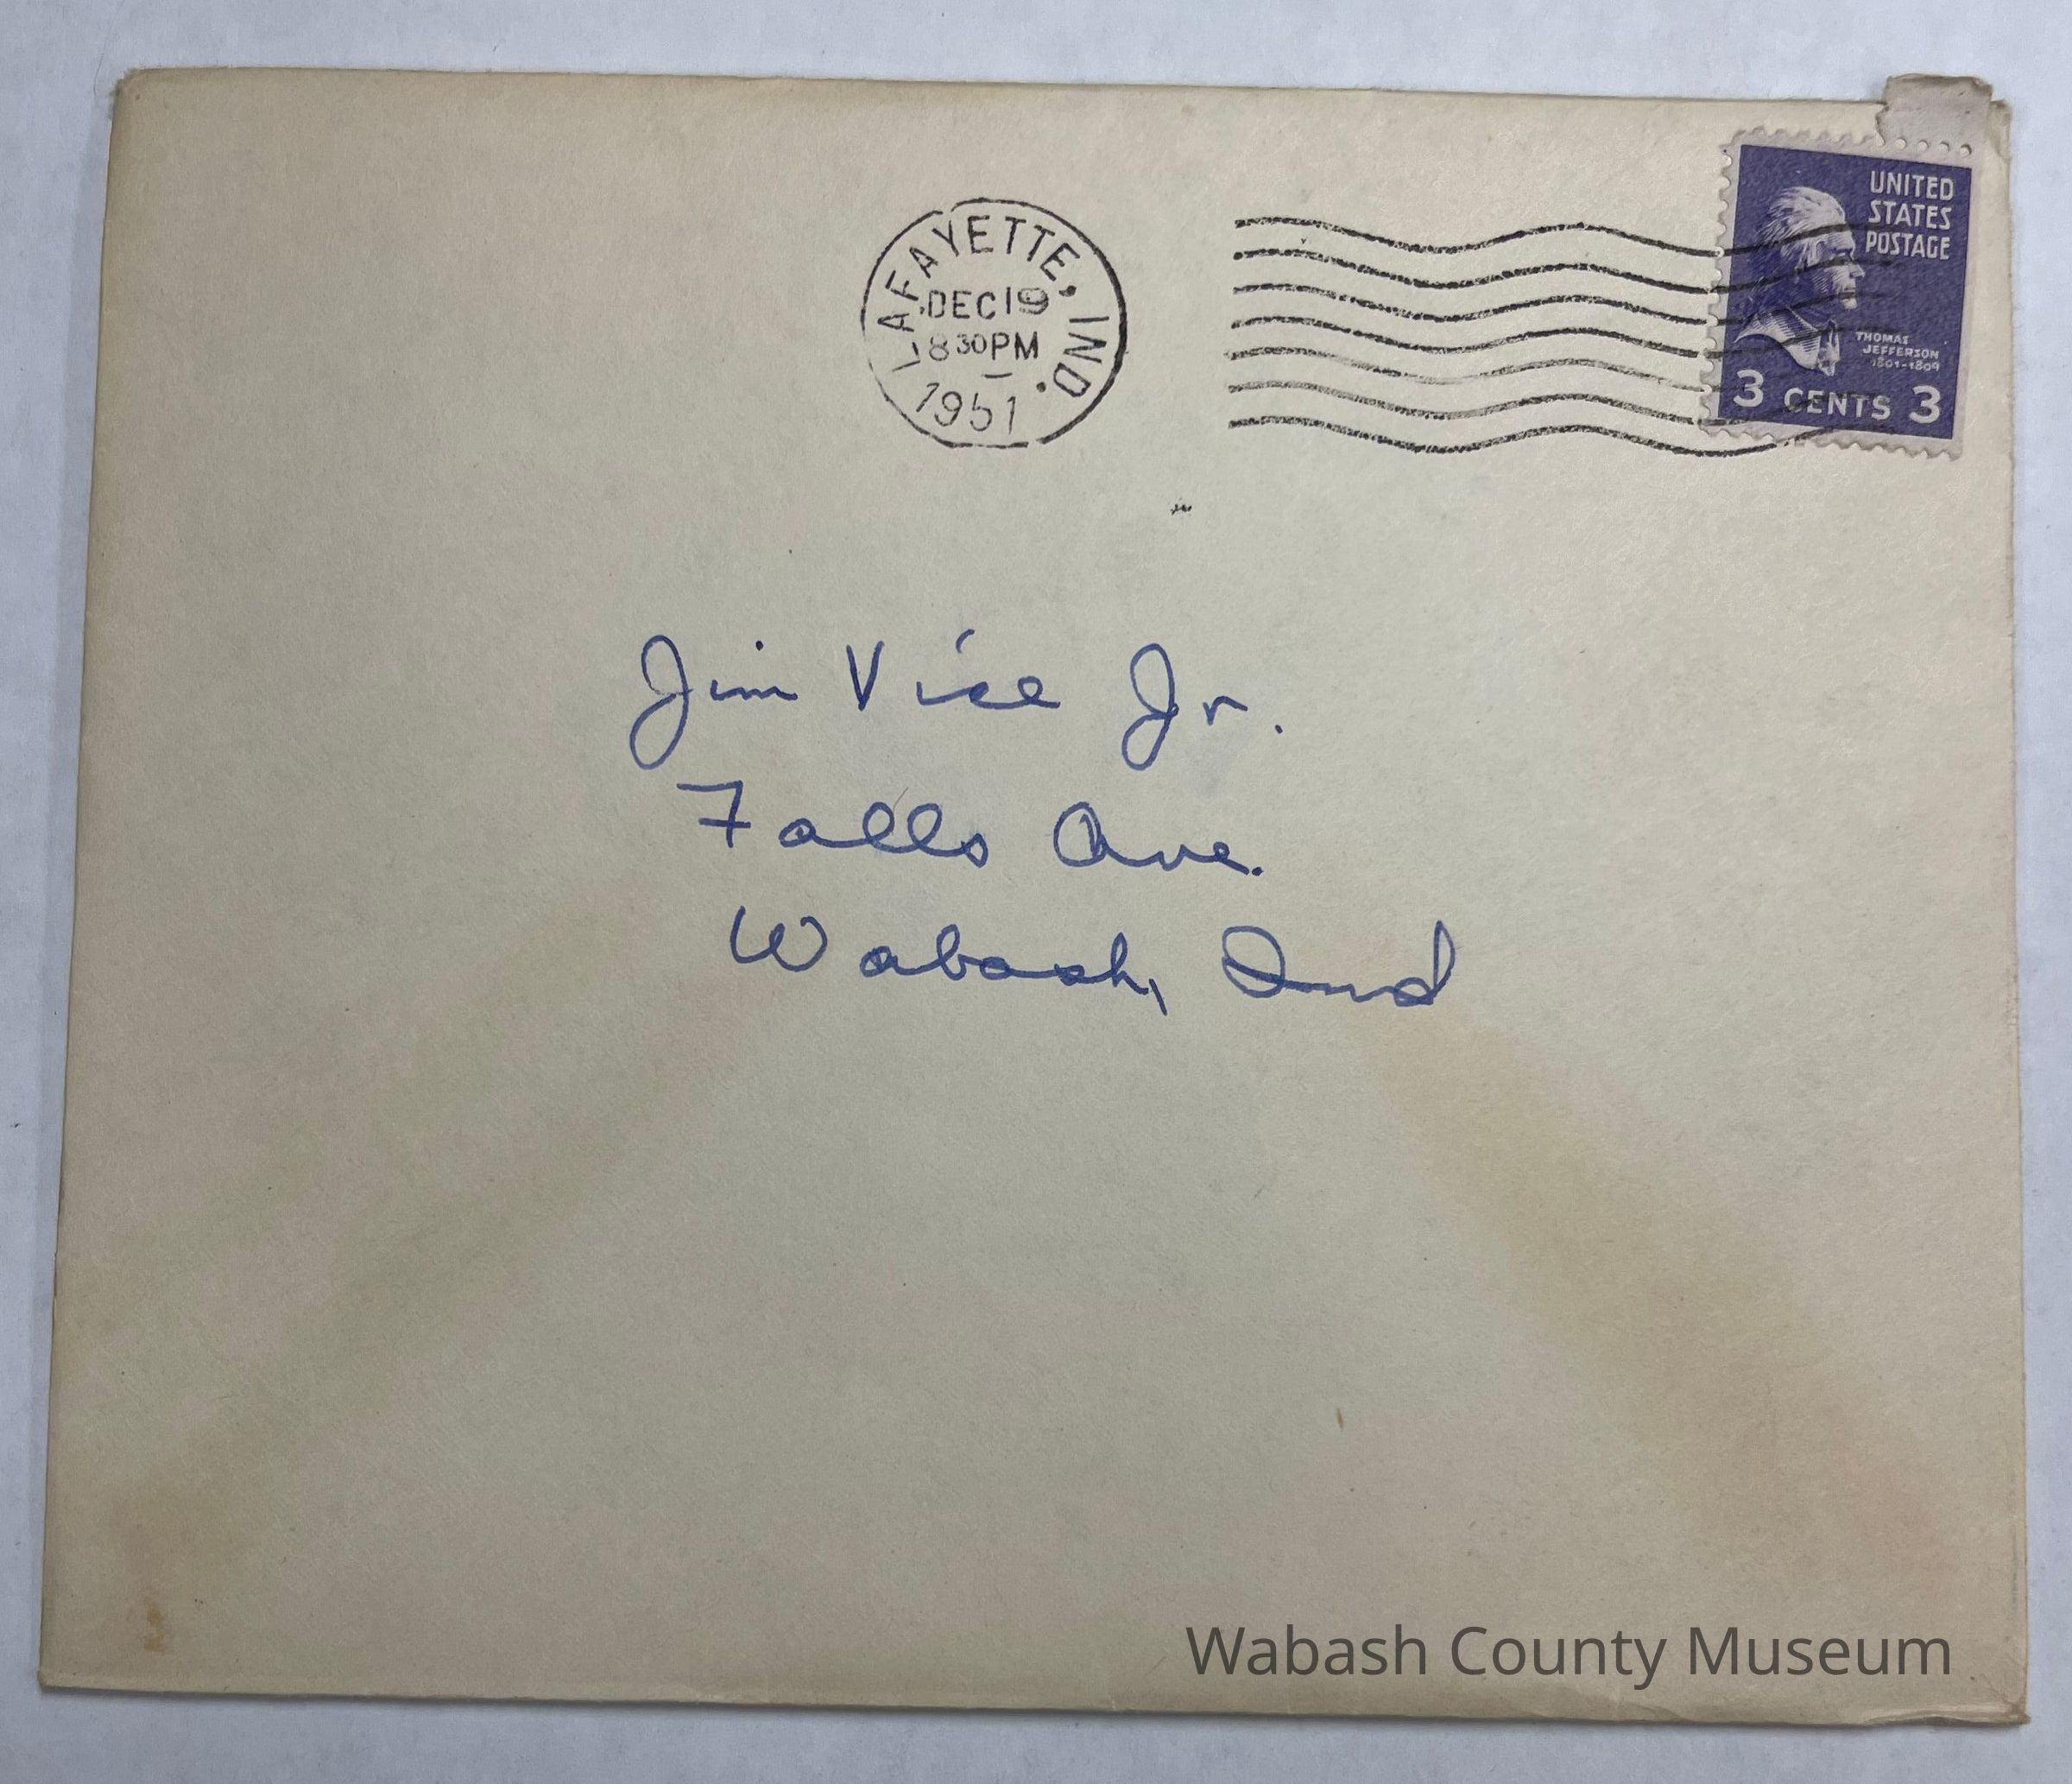 LAFAYETTE, IND.
DEC 19
8 30 PM
1951
UNITED
STATES
POSTAGE
THOMAS
JEFFERSON
1801-1809
3 CENTS 3
Jim Vice Jr.
Falls Ave.
Wabash, Ind
Wabash County Museum